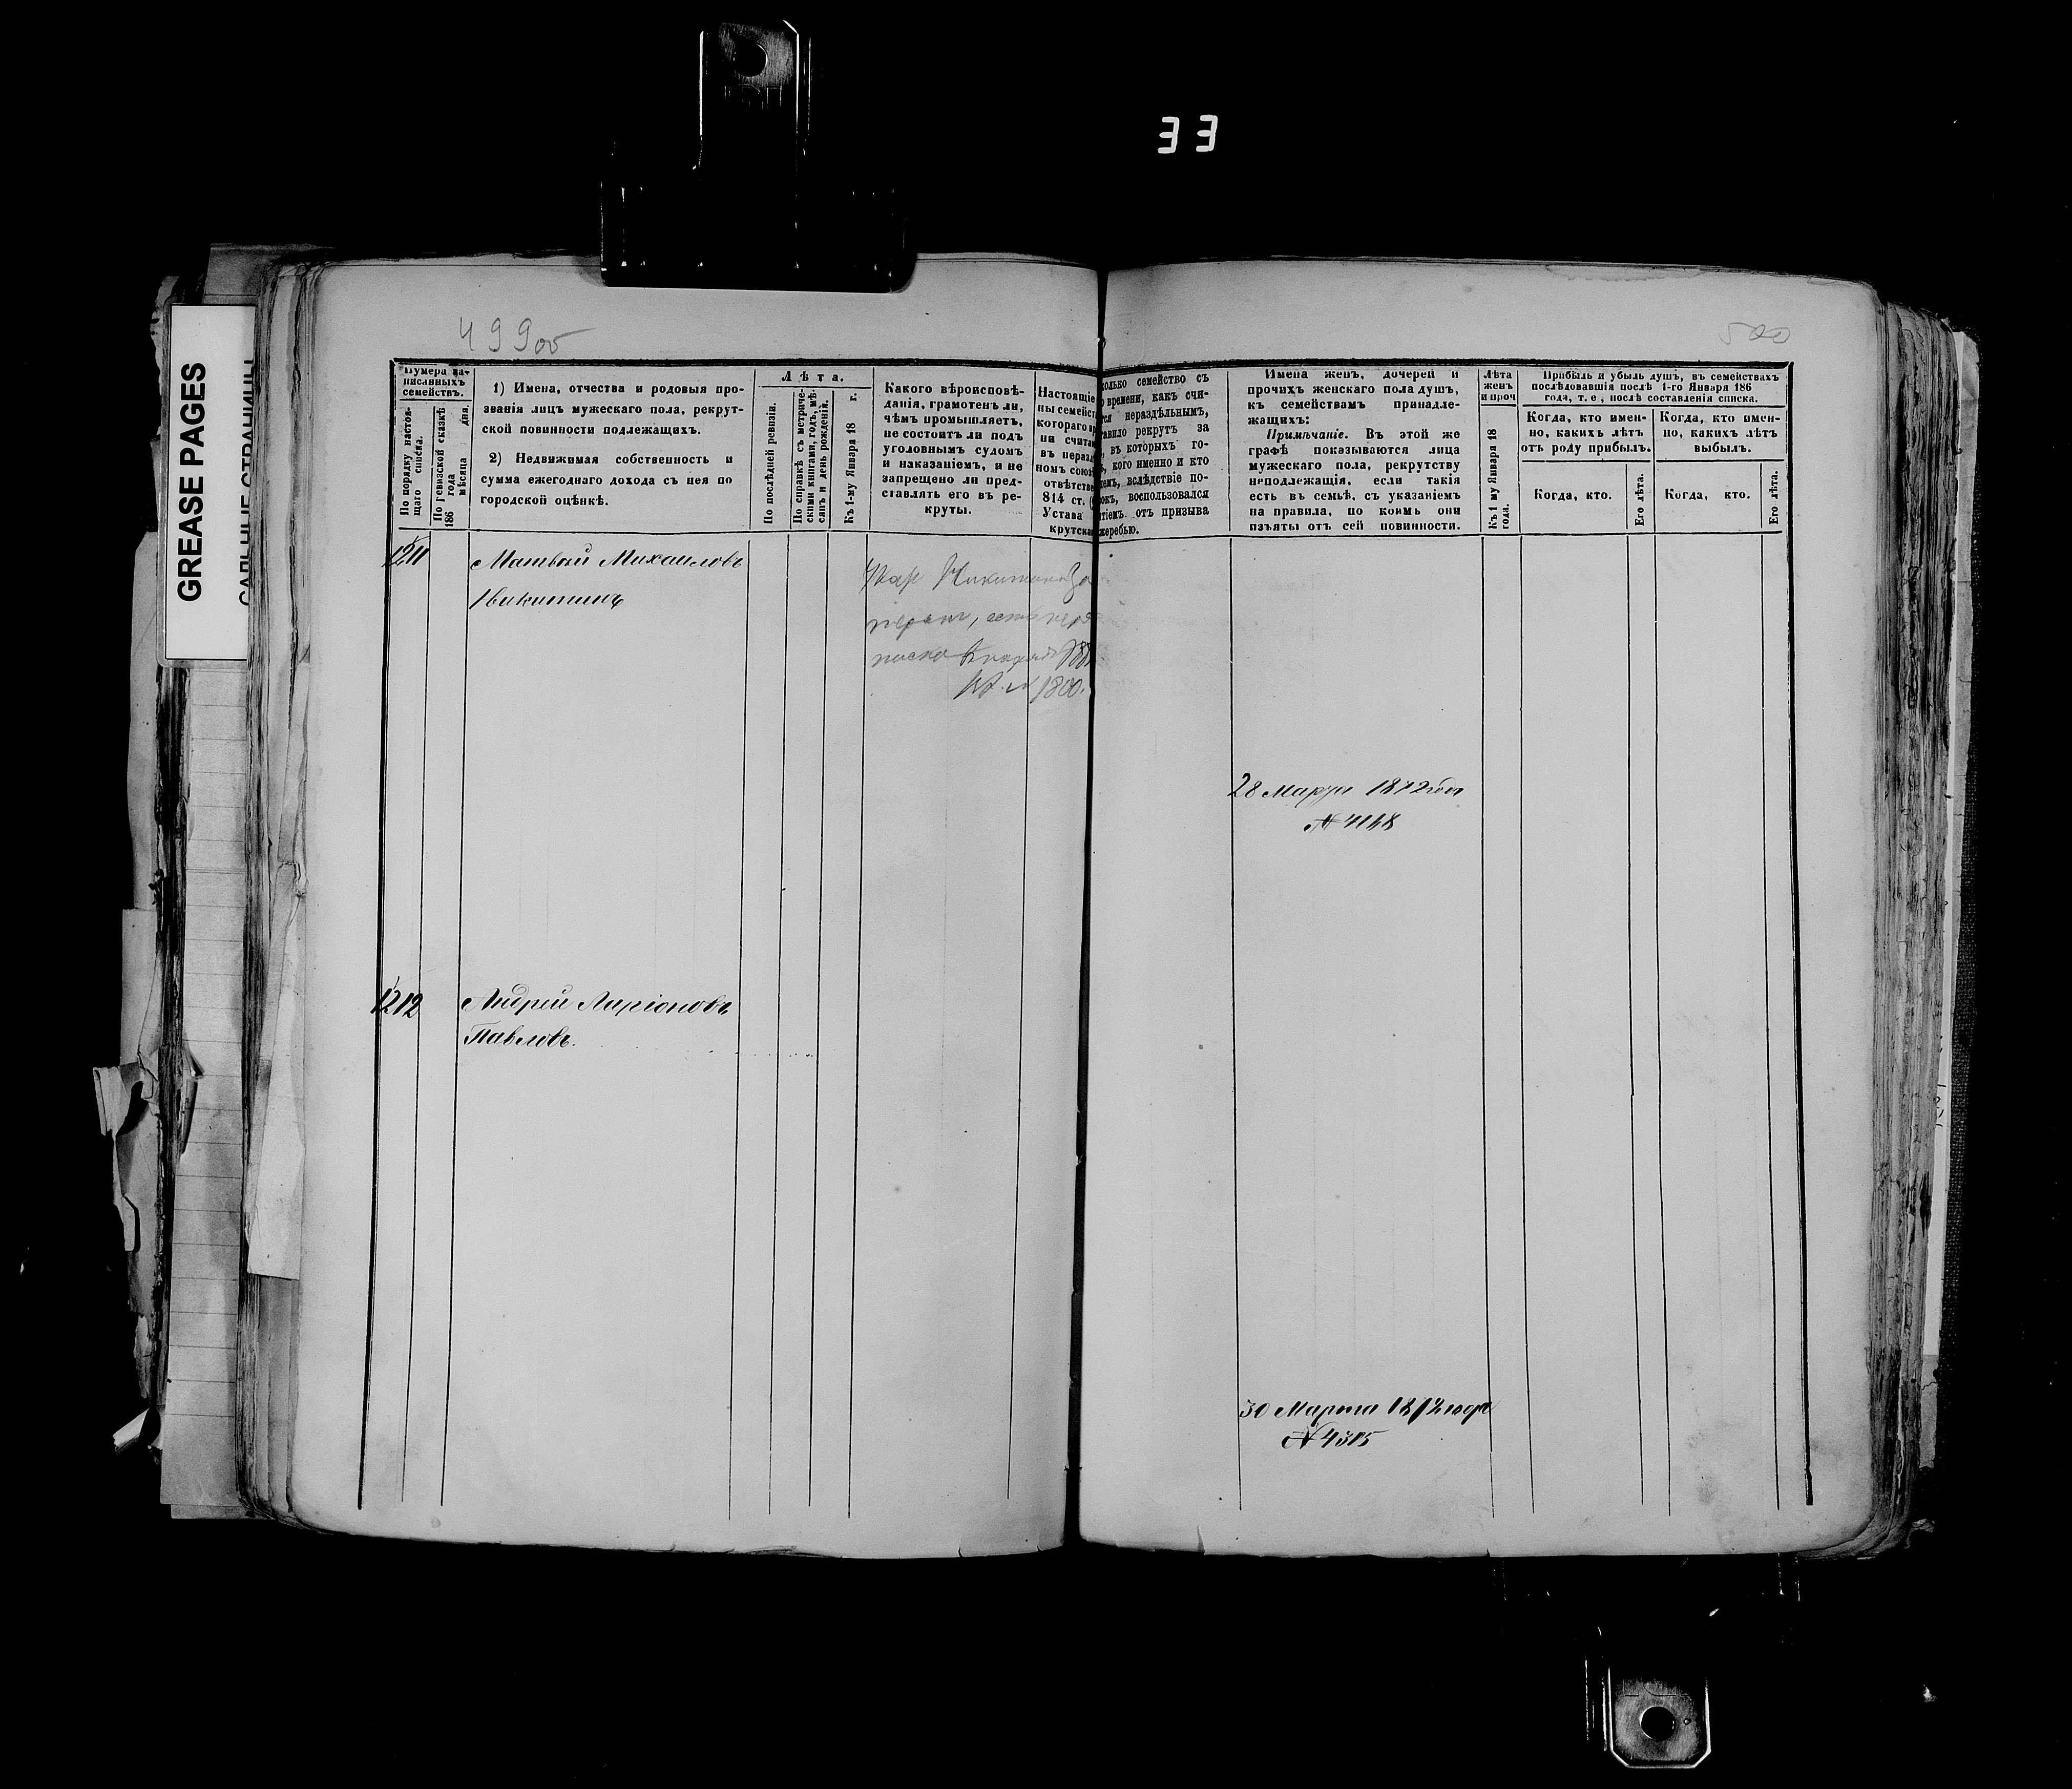 33
499 об
500
GREASE PAGES
Нумера за-
писанныхъ
семействъ.
По порядку настоя-
щаго списка.
По ревизской сказкѣ
186 года
мѣсяца дня.
1) Имена, отчества и родовыя про-
званія лицъ мужескаго пола, рекрут-
ской повинности подлежащихъ.
2) Недвижимая собственность и
сумма ежегоднаго дохода съ нея по
городской оцѣнкѣ.
Лѣта.
По послѣдней ревизіи.
По справкѣ съ метриче-
скими книгами, годъ, мѣ-
сяцъ и день рожденія.
Къ 1-му Января 18 г.
Какого вѣроисповѣ-
данія, грамотенъ ли,
чѣмъ промышляетъ,
не состоитъ ли подъ
уголовнымъ судомъ
и наказаніемъ, и не
запрещено ли пред-
ставлять его въ ре-
круты.
Настоящіе
ны семейст
котораго вр
ни счита
въ нераз
номъ союз
отвѣтстве
814 ст. (
Устава
крутска
колько семейство съ
о времени, какъ счи-
тся нераздѣльнымъ,
тавило рекрутъ за
, въ которыхъ го-
ѣ, кого именно и кто
емъ, вслѣдствіе по-
окъ, воспользовался
тіемъ отъ призыва
жеребью.
Имена женъ, дочерей и
прочихъ женскаго пола душъ,
къ семействамъ принадле-
жащихъ:
Примѣчаніе. Въ этой же
графѣ показываются лица
мужескаго пола, рекрутству
неподлежащія, если такія
есть въ семьѣ, съ указаніемъ
на правила, по коимъ они
изъяты отъ сей повинности.
Лѣта
женъ
и проч
Къ 1 му Января 18
года.
Прибыль и убыль душъ, въ семействахъ
послѣдовавшія послѣ 1-го Января 186
года, т. е, послѣ составленія списка.
Когда, кто имен-
но, какихъ лѣтъ
отъ роду прибылъ.
Когда, кто имен-
но, какихъ лѣтъ
выбылъ.
Когда, кто.
Его лѣта.
Когда, кто.
Его лѣта.
1211
Матвѣй Михаиловъ
Никитинъ
1800.
28 Марта 1872 года
№ 4148
1212
Андрей Ларіоновъ
Павловъ.
30 Марта 1872 года
№ 4315